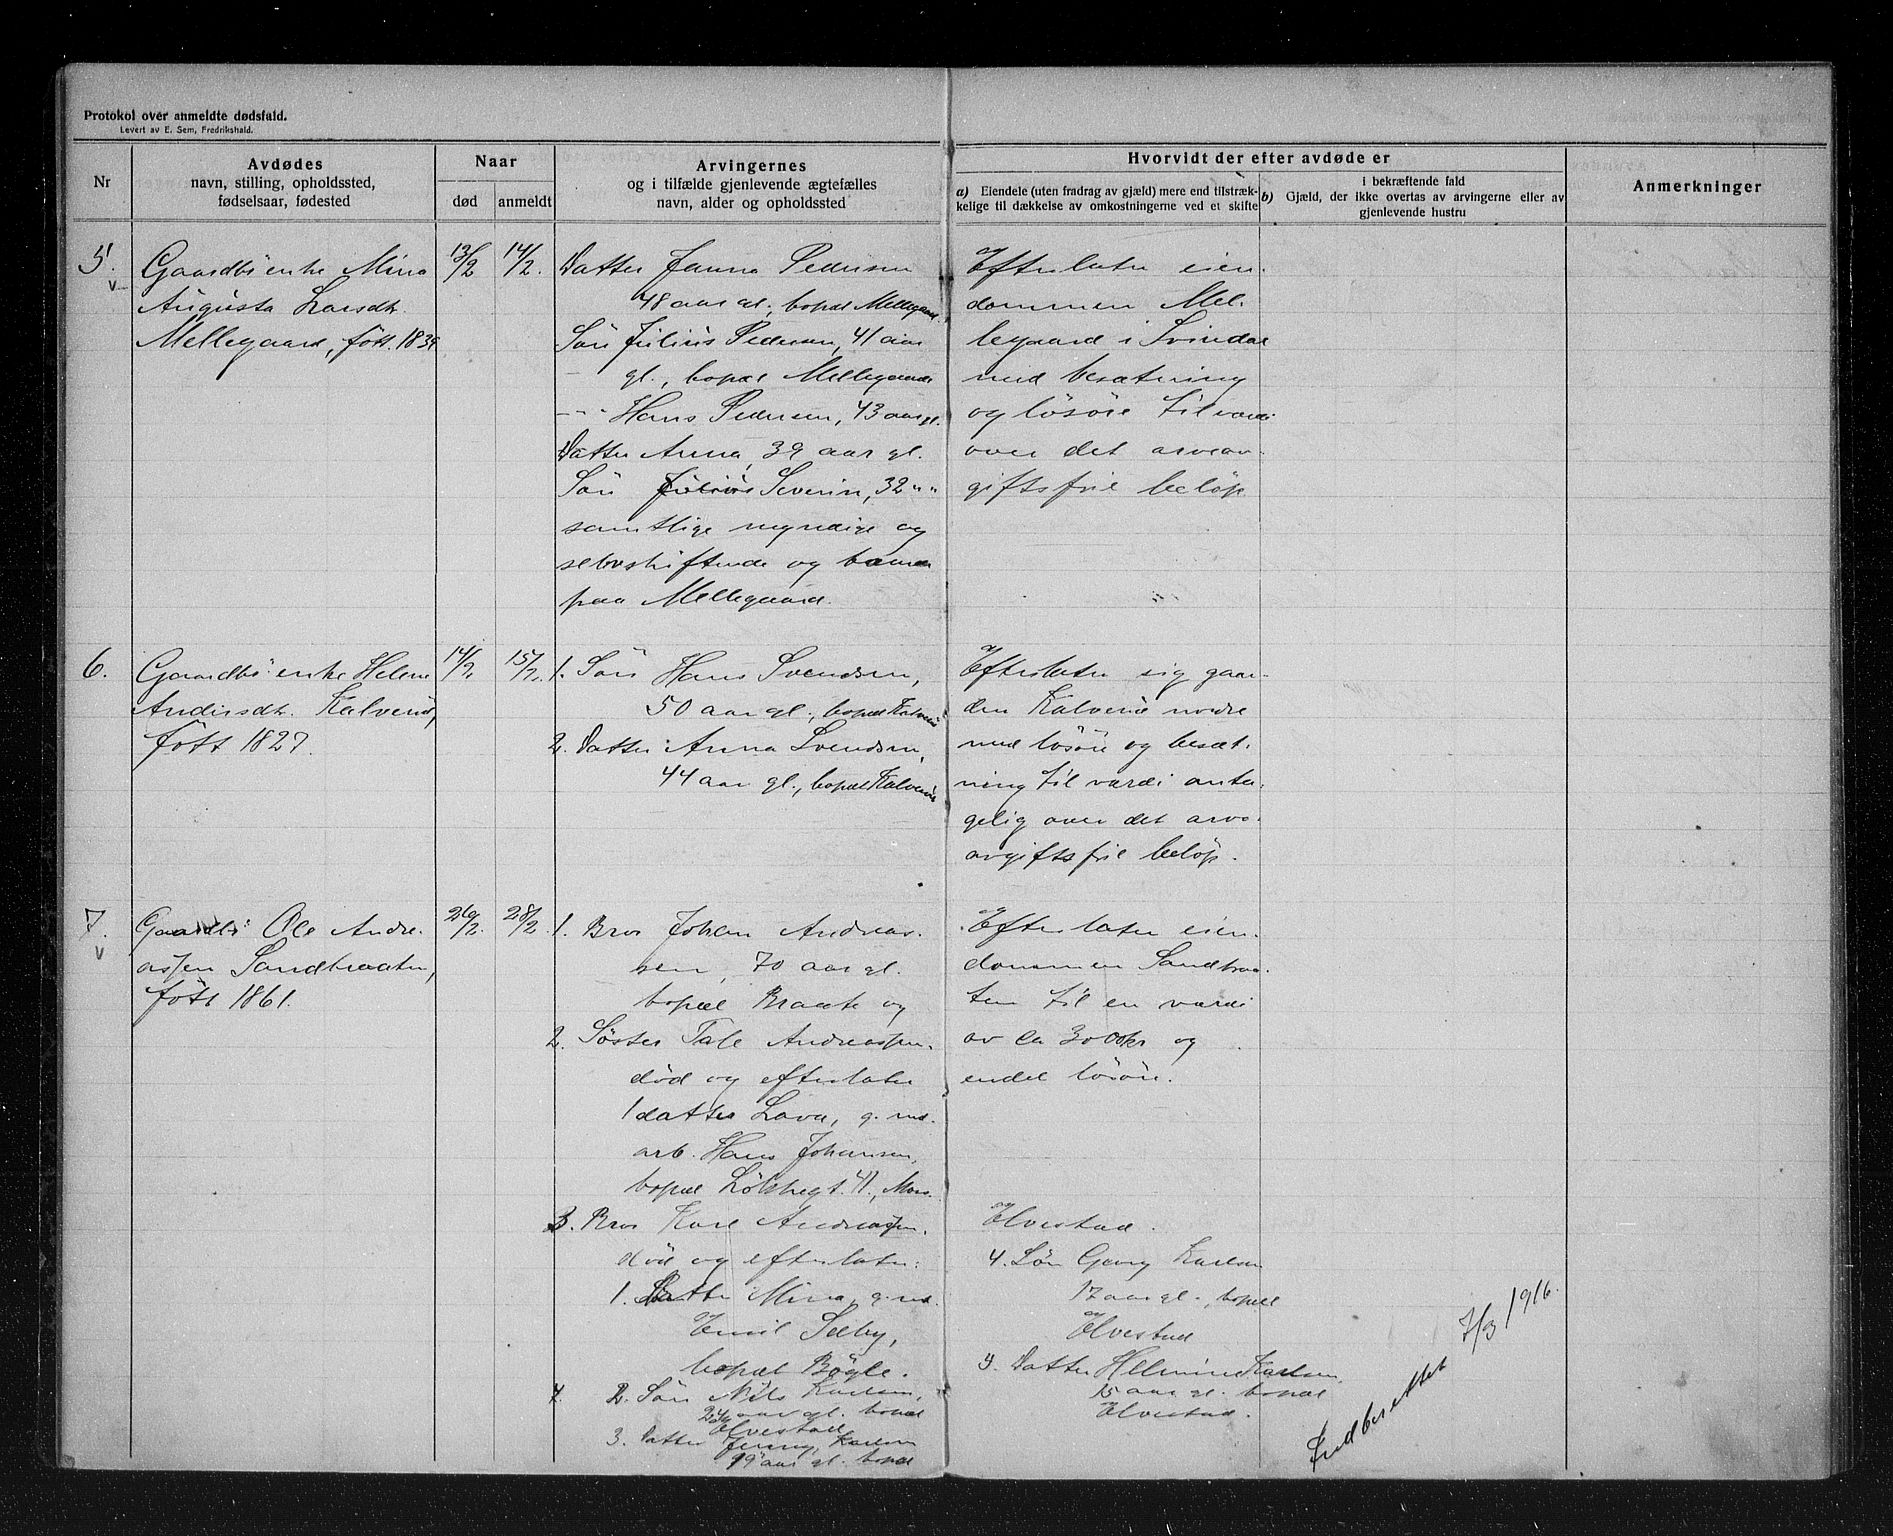 Protokol over anmeldte dødsfald.
Levert av E. Sem, Fredrikshald.
Nr
Avdødes
navn, stilling, opholdssted,
fødselsaar, fødested
Naar
død
anmeldt
Arvingernes
og i tilfælde gjenlevende ægtefælles
navn, alder og opholdssted
Hvorvidt der efter avdøde er
a) Eiendele (uten fradrag av gjæld) mere end tilstræk-
kelige til dækkelse av omkostningerne ved et skifte
i bekræftende fald
b) Gjæld, der ikke overtas av arvingerne eller av
gjenlevende hustru
Anmerkninger
5.
v
Gaardbr enke Mina
Augusta Larsdtr.
Mellegaard, født 1839
13/2
14/2.
Datter Janna Pedersen
48 aar gl., bopæl Mellegaard.
Søn Julius Pedersen, 41 aar
gl., bopæl Mellegaard
- - - Hans Pedersen, 43 aar gl.
Datter Anna, 39 aar gl.
Søn Severin, 32 " "
samtlige myndige og
selvskiftende og boende
paa Mellegaard.
Efterlater eien-
dommen Mel-
legaard i Svindal
med besætning
og løsøre til værdi
over det arveav-
giftsfrie beløp
6.
Gaardbr enke Helene
Andersdtr. Kalverud,
født 1827.
14/2
15/2.
1. Søn Hans Svendsen,
50 aar gl., bopæl Kalverud
2. Datter Anna Svendsen,
44 aar gl., bopæl Kalverud
Efterlater sig gaar-
den Kalverud nedre
med løsøre og besæt-
ning til værdi anta-
gelig over det arve-
avgiftsfrie beløp.
7.
v
Gaardbr Ole Andre-
assen Sandbraaten,
født 1861.
26/2.
28/2.
1. Bror Johan Andreas-
sen, 70 aar gl.
bopæl Braate og
2. Søster Tale Andreassen.
død og efterlater
1 datter Lova, g. m.
arb. Hans Johansen,
bopæl 41, Moss.
3. Bror Karl Andreassen.
død og efterlater:
1. Datter Mina, g. m.
Emil Sæby,
bopæl Bøgle.
2. Søn Nils Karlsen,
24 aar gl. bopæl
Elvestad
3. Datter Jenny Karlsen
19 aar gl. bopæl
Efterlater eien-
dommen Sandbraa-
ten til en værdi
av ca 3000kr og
endel løsøre.
Elvestad.
4. Søn Georg Karlsen
17 aar gl., bopæl
Elvestad
Datter Helmine Karlsen,
15 aar gl. bopæl
Elvestad.
Indberettet 7/3 1916.